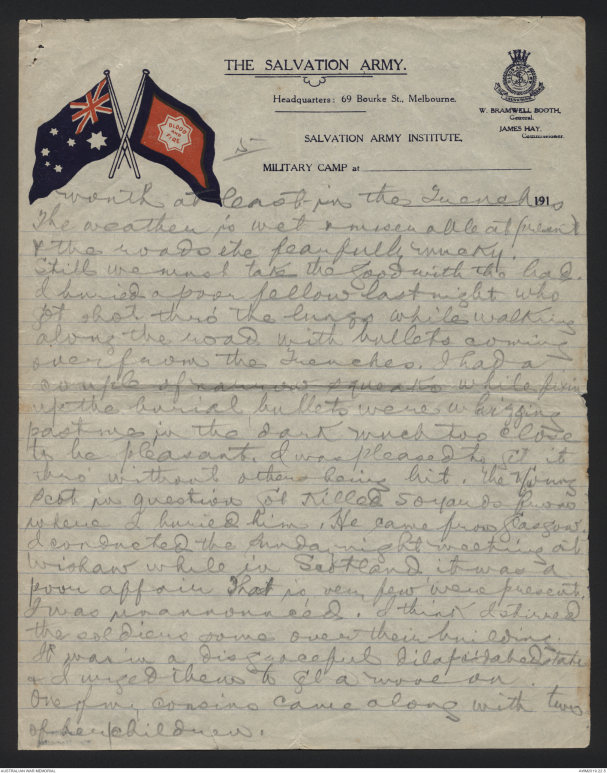 THE SALVATION ARMY.
Headquarters: 69 Bourke St., Melbourne.
W. BRAMWELL BOOTH,
General.
JAMES HAY,
Commissioner.
SALVATION ARMY INSTITUTE,
MILITARY CAMP at
BLOOD
AND
FIRE
5
191
month at least in the Trenches
The weather is wet & miserable at present
& the roads are fearfully mucky.
Still we must take the good with the bad.
I buried a poor fellow last night who
got shot thro' the lungs while walking
along the road with bullets coming
over from the Trenches. I had a
couple of narrow squeaks while fixing
up the burial bullets were whizzing
past me in the dark much too close
to be pleasant. I was pleased to get it
thro' without others being hit. The young
Scot in question got killed 50 yards from
where I buried him. He came from Glasgow.
I conducted the Sunday night meeting at
Wishaw while in Scotland it was a
poor affair That is very few were present.
I was unannounced. I think I stirred
the soldiers some over their building.
It was in a disgraceful dilapidated state
& I urged them to get a move on.
One of my cousins came along with two
of her children.
AUSTRALIAN WAR MEMORIAL